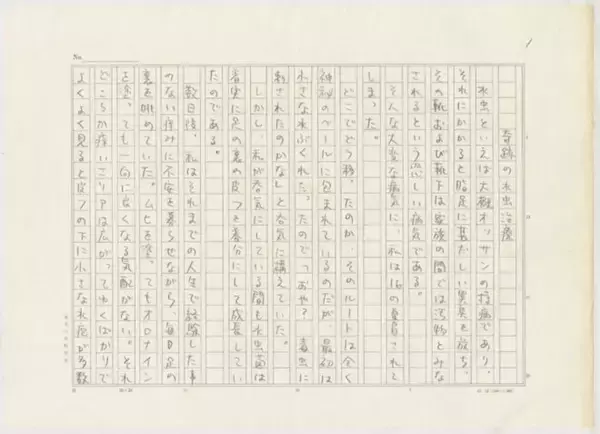 No.
1
奇跡の水虫治療
水虫といえば大概オッサンの持病であり、
それにかかると脂足に甚だしい異臭を放ち、
その靴および靴下は家族の間では汚物とみな
されるという恐しい病気である。
そんな大変な病気に、私は16の夏冒されて
しまった。
どこでどう移ったのか、そのルートは全く
神秘のベールに包まれているのだが、最初は
小さな水ぶくれだったので〝おや?毒虫に
刺されたのかな〟と呑気に構えていた。
しかし、私が呑気にしている間も水虫菌は
着実に足の裏の皮フを養分にして成長してい
たのである。
数日後、私はそれまでの人生で経験した事
のない痒みに不安を募らせながら、毎日足の
裏を眺めていた。ムヒを塗ってもオロナイン
を塗っても一向に良くなる気配がない。それ
どころか痒いエリアは広がってゆくばかりで
よくよく見ると皮フの下に小さな水疱が多数